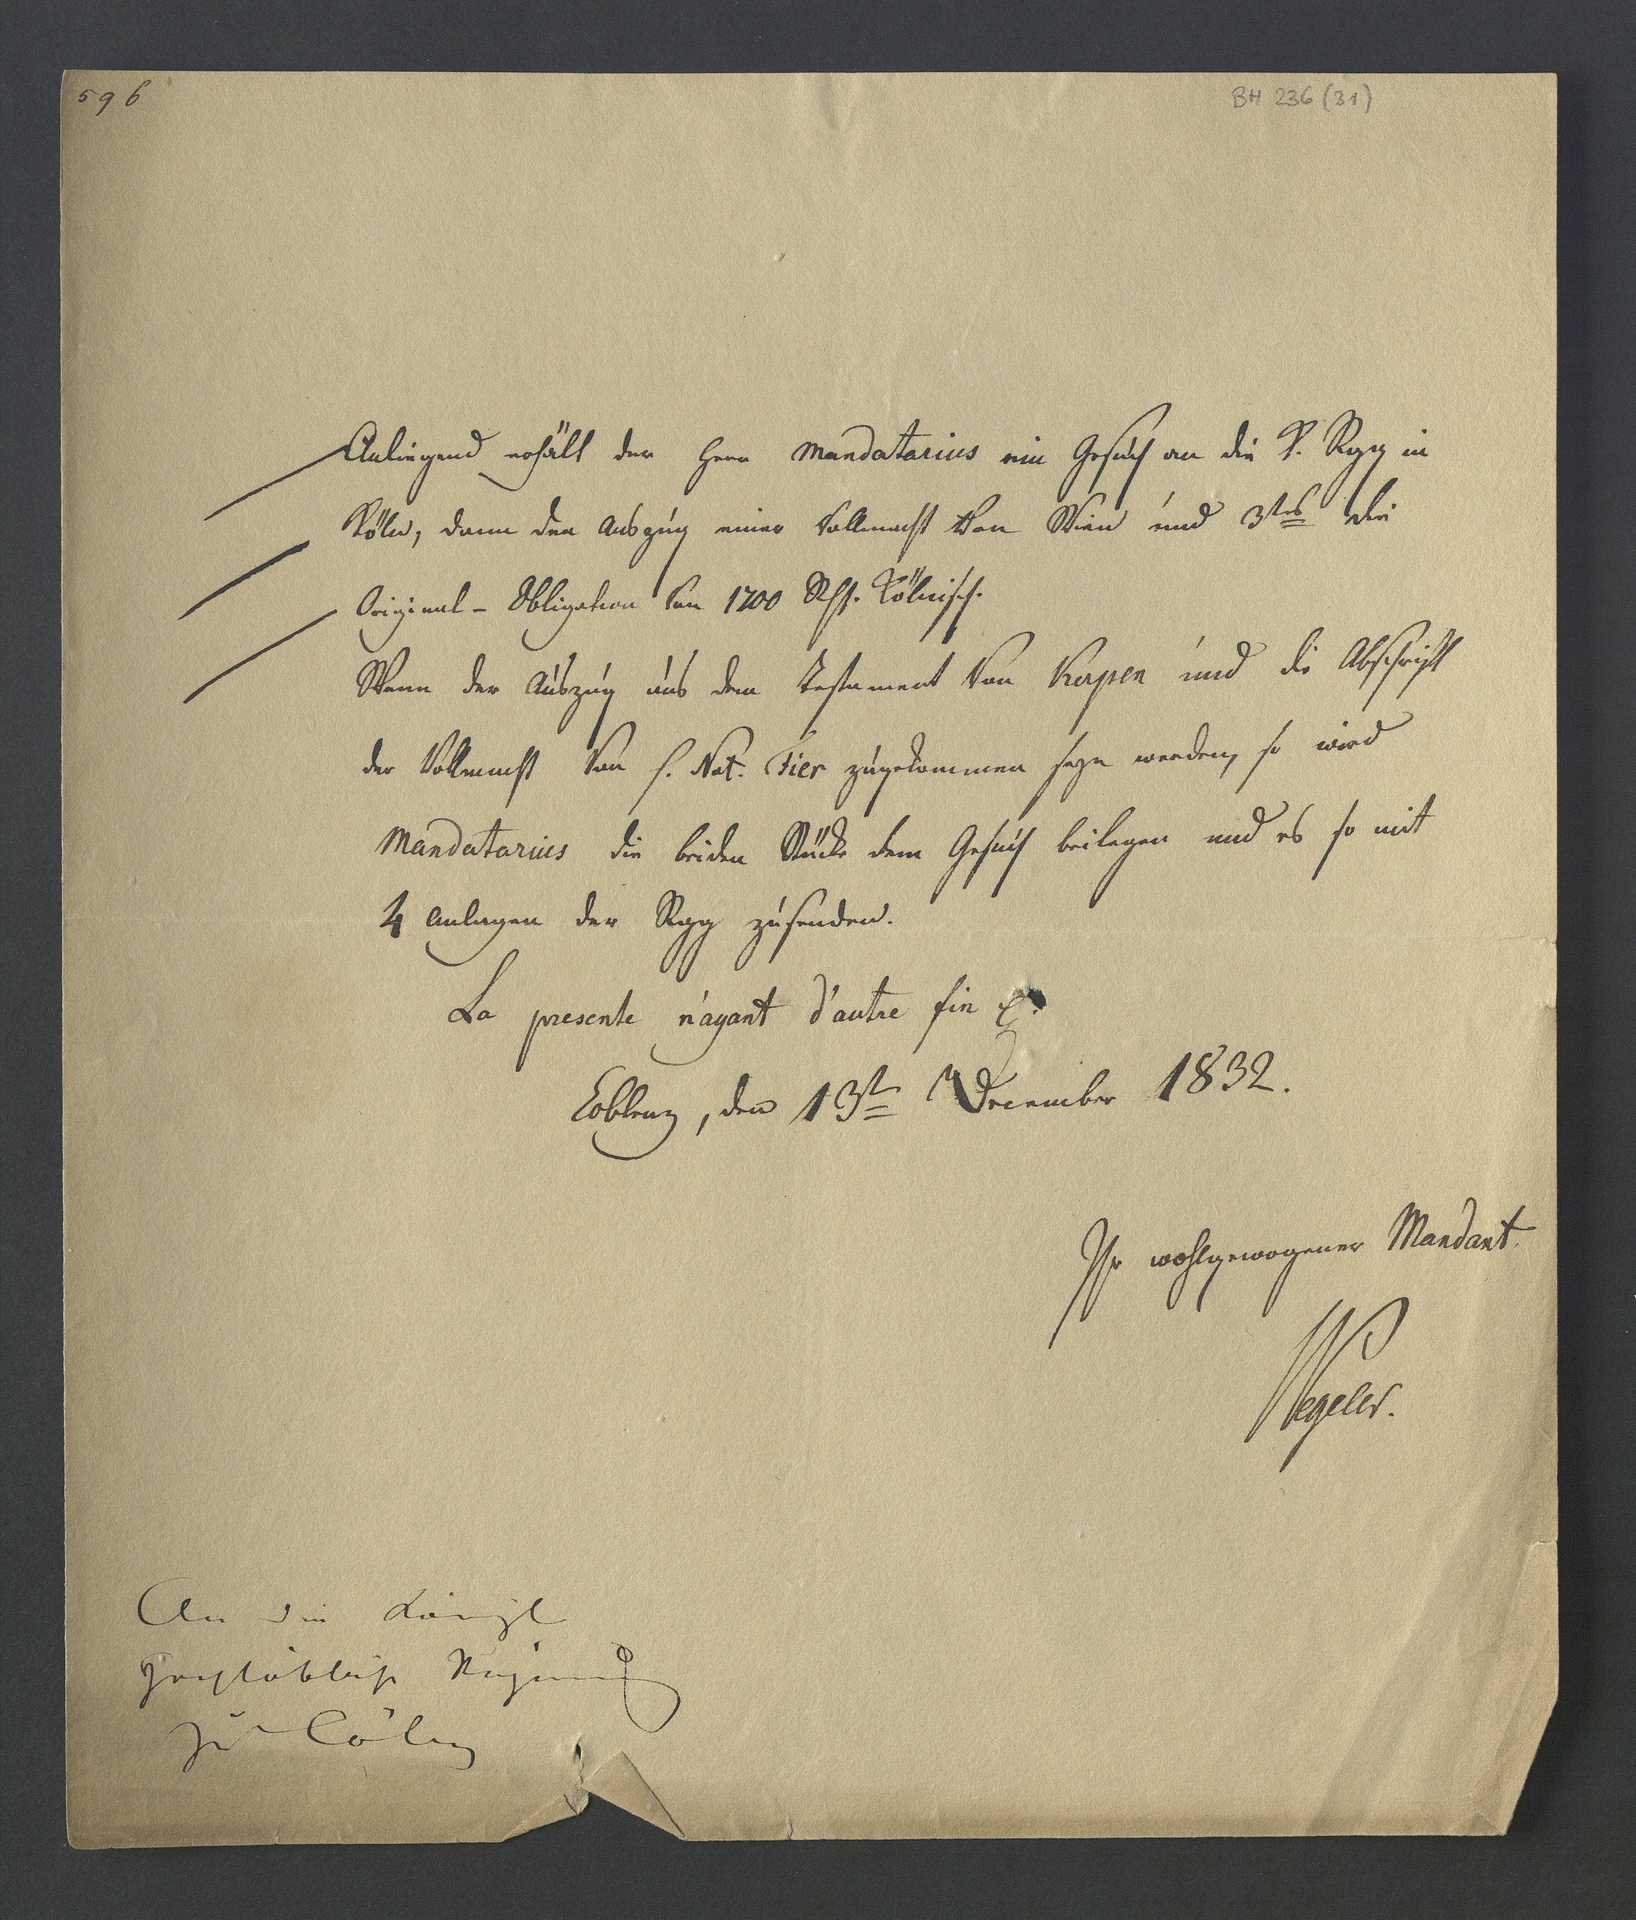 596
BH 236 (31)
Anliegend erhält der Herr Mandatarius ein Gesuch an die K. Rgg in
Köln, dann den Auszug einer Vollmacht von Wien und 3tes die
Original - Obligation von 1200 Rth. Kölnisch.
Wenn der Auszug aus dem Testament von Kerpen und die Abschrift
der Vollmacht von H. Not. Fier zugekommen seyn werden, so wird
Mandatarius die beiden Stücke dem Gesuch beilegen und es so mit
4 Anlagen der Rgg zusenden.
La presente n'ayant d'autre fin
Coblenz, den 13t December 1832.
Ihr wohlgewogener Mandant.
Wegeler.
An die Königl
Hochlöbliche Regierung
zu Cöln